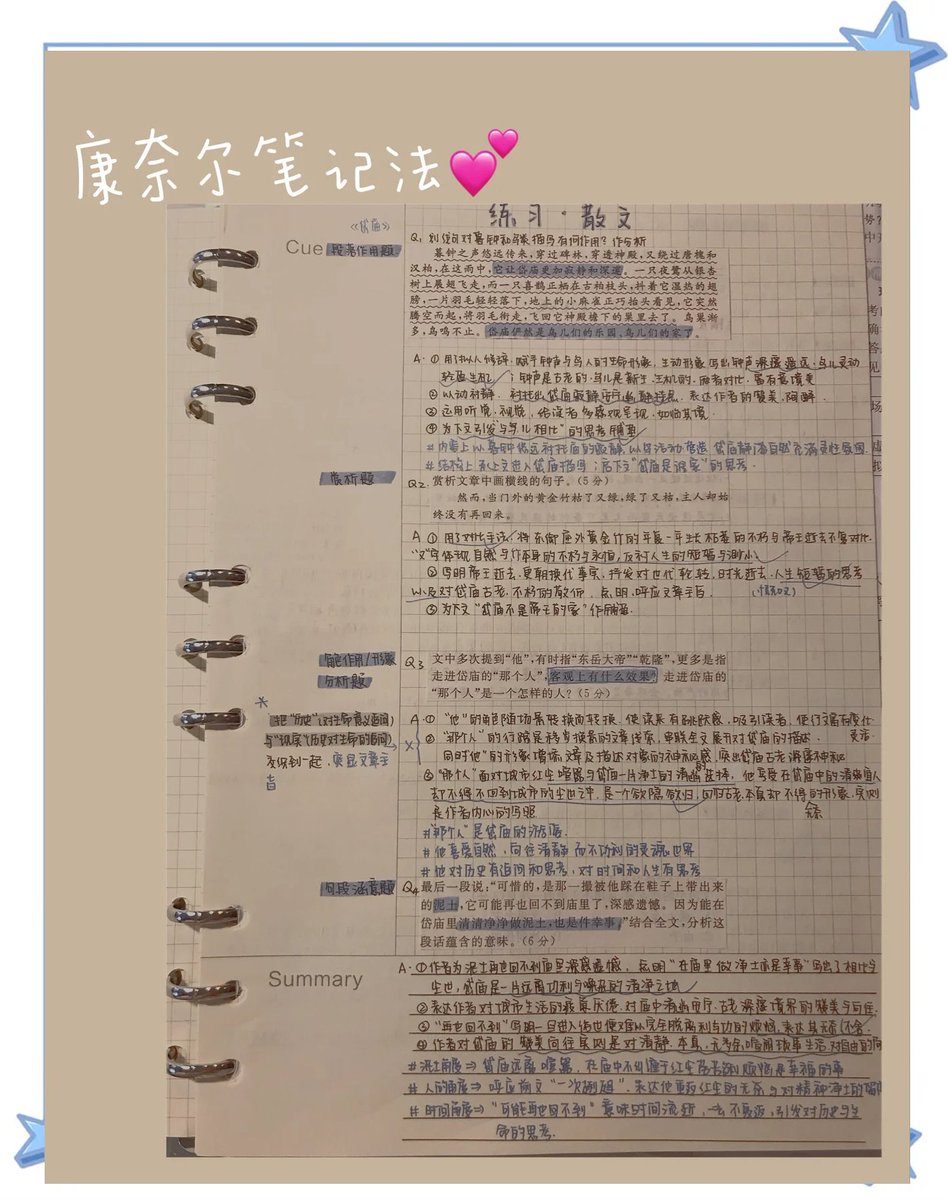 康奈尔笔记法
练习·散文
《岱庙》
Cue
段落作用题
Q1 划线句对暮钟和鸟类描写有何作用?作分析
暮钟之声悠远传来,穿过碑林,穿透神殿,又绕过唐槐和
汉柏,在这雨中,它让岱庙更加寂静和深邃。一只夜莺从银杏
树上展翅飞走,而一只喜鹊正栖在古柏枝头,抖着它湿热的翅
膀,一片羽毛轻轻落下,地上的小麻雀正巧抬头看见,它突然
腾空而起,将羽毛衔走,飞回它神殿檐下的巢里去了。鸟巢渐
多,鸟鸣不止。岱庙俨然是鸟儿们的乐园,鸟儿们的家了。
A. ① 用了拟人修辞,赋予钟声与鸟人的生命形象,生动形象写出钟声深邃遥远,鸟儿灵动
;钟声是古老的,鸟儿是新生、生机的,两者对比,富有意境美
② 以动衬静,衬托出岱庙寂静,表达作者的赞美、陶醉
③ 运用听觉、视觉,给读者多感观呈现,如临其境
④ 为下文引发"与鸟儿相比"的思考铺垫
#内容上以暮钟悠远衬托庙的寂静,以鸟活动营造岱庙静谧自然充满灵性氛围
#结构上承上文进入岱庙描写;启下文"岱庙是谁家"的思考.
赏析题
Q2. 赏析文章中画横线的句子。(5分)
然而,当门外的黄金竹枯了又绿,绿了又枯,主人却始
终没有再回来。
A ① 用了对比手法,将东御座外黄金竹的年复一年生长枯萎的不朽与帝王逝去不复对比.
"又"字体现自然与竹本身的不朽与永恒,反衬人生的短暂与渺小
② 写明帝王逝去、更朝换代事实,抒发对世代轮转、时光逝去、人生短暂的思考
以及对岱庙古老、不朽的敬仰,点明、呼应文章主旨.
③ 为下文"岱庙不是帝王的家"作铺垫.
作用/形象
分析题
Q3 文中多次提到"他",有时指"东岳大帝""乾隆",更多是指
走进岱庙的"那个人",客观上有什么效果?走进岱庙的
"那个人"是一个怎样的人?(5分)
把"历史"对生命意义追问
与"现实"历史对生命的追问
交织到一起,突显文章主
旨
A. ① "他"的角色随场景转换而转换,使读来有跳跃感,吸引读者,使行文富有变化
灵活
② "那个人"的行踪是移步换景的文章线索,串联全文展开对岱庙的描述.
同时"他"的形象增添文章及描述对象的神秘感,突出岱庙古老深邃神秘
③ "那个人"面对城市红尘喧嚣与岱庙一片净土的,他享受在岱庙中的清幽宜人
却不得不回到城市的尘世之中,是一个欲隐欲归,回归古老本真却不得的形象,实则
是作者内心的写照
#"那个人"是岱庙的游客.
#他喜爱自然,向往清静而不功利的灵魂世界
#他对历史有追问和思考,对时间和人生有思考
句段涵意题
Q4 最后一段说:"可惜的,是那一撮被他踩在鞋子上带出来
的泥土,它可能再也回不到庙里了,深感遗憾。因为能在
岱庙里清清净净做泥土,也是件幸事。"结合全文,分析这
段话蕴含的意味。(6分)
Summary
A. ①作者为泥土再也回不到庙里深感遗憾,点明"在庙里做净土亦是幸事"写出了相比与
尘世,岱庙是一片远离功利与喧嚣的清净之地
②表达作者对城市生活的疲累厌倦,对庙中清幽宽厅、古老深邃境界的赞美与向往
③"再也回不到"写明一旦进入俗世便难以完全脱离利与功的烦恼,表达其无奈(不舍.
④作者对岱庙的赞美向往实则是对清静、本真、无为、喧闹琐事生活,对自由的向
#泥土角度⇒岱庙远离喧嚣,在庙中不纠缠于红尘是幸福的事
#人的角度⇒呼应前文"一次",表达他重效红尘的无奈与对精神净土的留
#时间角度⇒"可能再也回不到"意味时间流逝,一去不复返,引发对历史与生
命的思考.